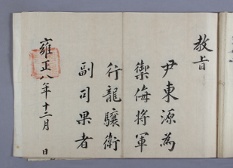 教旨
尹東源為
禦侮將軍
行龍驤衛
副司果者
雍正八年十二月 日